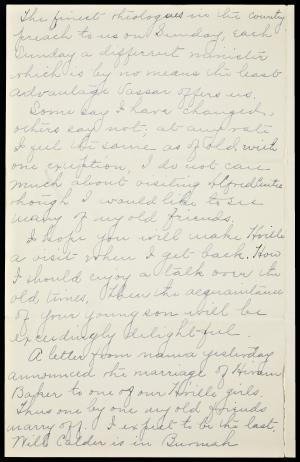 The finest theologues in the country
preach to us on Sunday, each
Sunday a different minister
which is by no means the least
advantage Vassar offers us.
Some say I have changed,
others say not; at any rate
I feel the same as of old, with
one exception, I do not care
much about visiting Alfred Centre
though I would like to see
many of my old friends.
I hope you will make Hville
a visit when I get back. How
I should enjoy a talk over the
old times, then the acquaintance
of your young son will be
exceedingly delightful.
A letter from mama yesterday
announced the marriage of Hiram
Baker to one of our Hville girls.
Thus one by one my old friends
marry off. I expect to be the last.
Will Calder is in Burmah